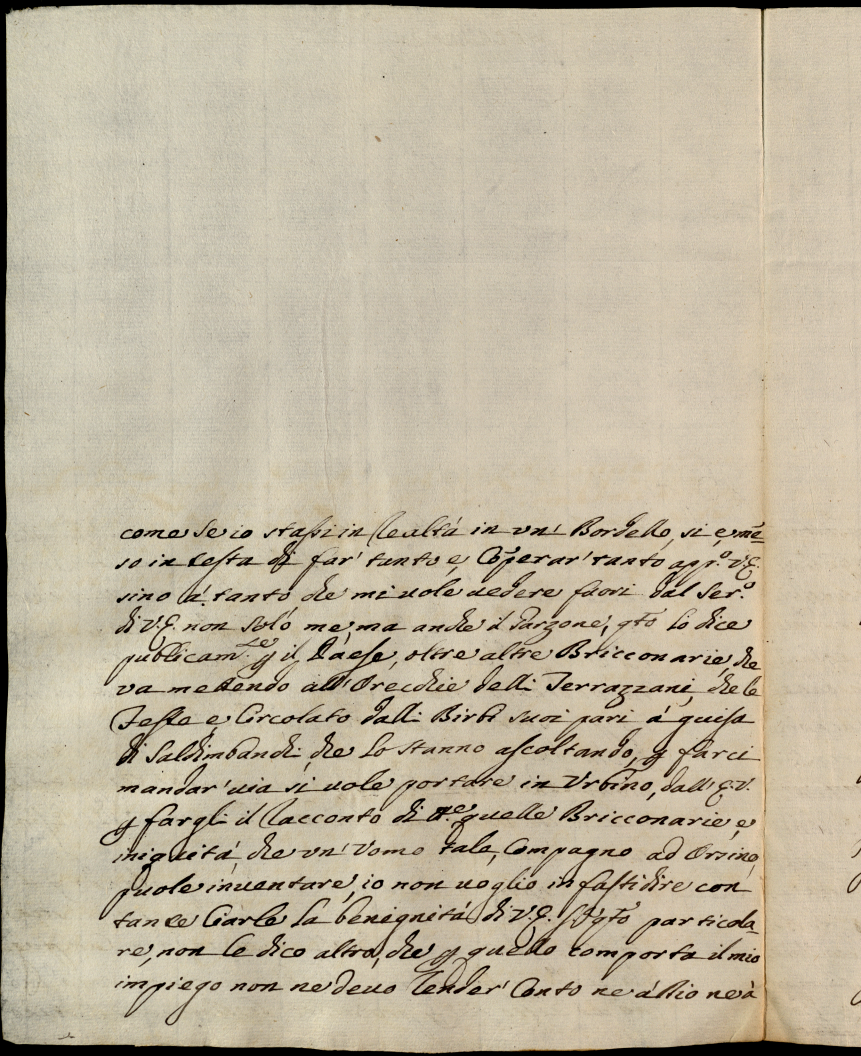 come se io stassi in realtà in un' Bordello, si e, mes=
so in testa di far' tanto e, Coperar' tanto app.o V.E.
sino a' tanto che mi vole vedere fuori dal Ser.o
di V.E. non solo me, ma anche il Garzone, q.to lo dice
publicam.te p il Paese, oltre altre Bricconarie, che
va mettendo all'Orecchie delli Terrazzani, che le
Feste e, Circolato dalli Birbi suoi pari à guisa
di Saldimbanchi, che lo stanno ascoltando, p farci
mandar' via si vole portare in Urbino, dall'E.V.
p fargli il racconto di quelle Bricconarie, e,
iniquità, che un' Uomo tale, Compagno ad Orsino,
puole inventare, io non voglio infastidire con
tante Ciarle la benignità di V.E. q.to particola=
re, non le dico altro, che p quello comporta il mio
impiego non ne devo render' Conto ne à Dio ne à